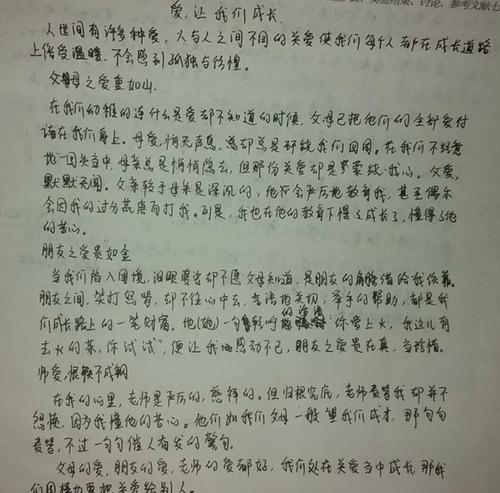 参考文献七
爱,让我们成长
人世间有许多种爱,人与人之间不同的关爱使我们每个人都在成长道路
上倍受温暖,不会感到孤独与彷徨。
父母之爱重如山
在我们幼稚的连什么是爱都不知道的时候,父母已把他们的全部爱付
诸在我们身上。母爱,悄无声息,总却总是环绕我们四周。在我们不经意
地一回头当中,母亲总是悄悄隐去,但那份关爱却是萦绕我心。父爱,
默默无闻。父亲较于母亲是深沉的,他会严厉地教育我,甚至偶尔
会因我的过分而打我。可是,我也在他的教育下慢慢成长了,懂得了他
的苦心。
朋友之爱贵如金
当我们陷入困境,泪眼却不愿父母知道,是朋友的肩膀借给我依靠。
朋友之间,笑打怒骂,却不往心中去,言语地关切,举手的帮助,都是我
们成长路上的一笔财富。他(她)一句的话语:你爱上火,我这儿有
去火的茶,你试试",便让我感动不已,朋友之爱贵在真,当珍惜。
师爱,恨铁不成钢
在我的心里,老师是严厉的,慈祥的。但归根究底,老师责骂我却并不
怨恨,因为我懂他的苦心。他们如我们父母一般望我们成才,那句句
责骂,不过一句句催人奋发的警句。
父母的爱,朋友的爱,老师的爱都好,我们处在关爱当中成长,那我
们同样也要把关爱给别人。